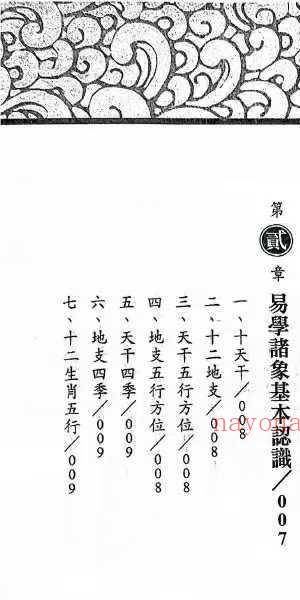 第貳章
易學諸象基本認識/007
一、十天干/008
二、十二地支/008
三、天干五行方位/008
四、地支五行方位/008
五、天干四季/009
六、地支四季/009
七、十二生肖五行/009